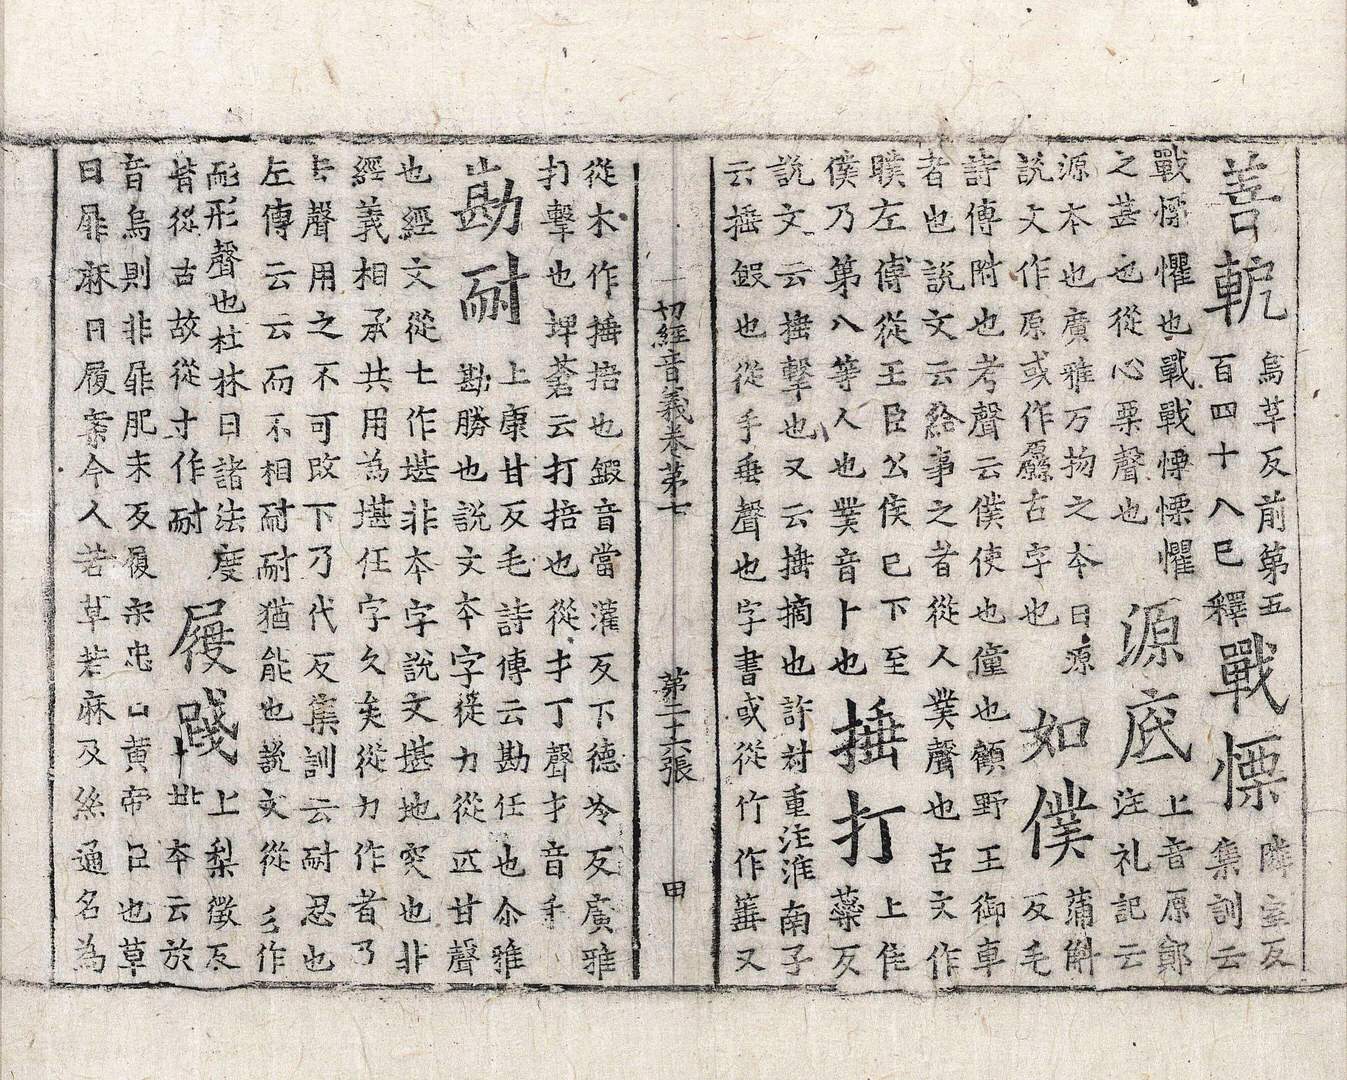 善軛
烏革反前第五
百四十八已釋
戰慄
隣室反
集訓云
戰慄懼也戰戰慄慄懼
之甚也從心栗聲也
源底
上音原鄭
注礼記云
源本也廣雅万物之本曰源
說文作原或作厵古字也
如僕
蒲斛
反毛
詩傳附也考聲云僕使也僮也顧野王御車
者也說文云給事之者從人菐聲也古文作
䑑左傳從王臣公侯已下至
僕乃第八等人也菐音卜也
捶打
上隹
蘂反
說文云捶擊也又云捶摘也許叔重注淮南子
云捶鍛也從手垂聲也字書或從竹作箠又
一切經音義卷第七　第二十六張　甲
從木作捶掊也鍛音當灌反下德冷反廣雅
打擊也埤蒼云打掊也從扌丁聲扌音手
勘耐
上康甘反毛詩傳云勘任也尒雅
勘勝也說文本字從力從匹甘聲
也經文從七作堪非本字說文堪地突也非
經義相承共用為堪任字久矣從力作者乃
去聲用之不可改下乃代反集訓云耐忍也
左傳云云而不相耐耐猶能也說文從彡作
耏形聲也杜林曰諸法度
皆從古故從寸作耐
屐踐
上梨徵反
本云於
音烏則非屝肥未反履宋忠山黃帝臣也草
曰屝麻曰履案今人若草若麻及絲通名為